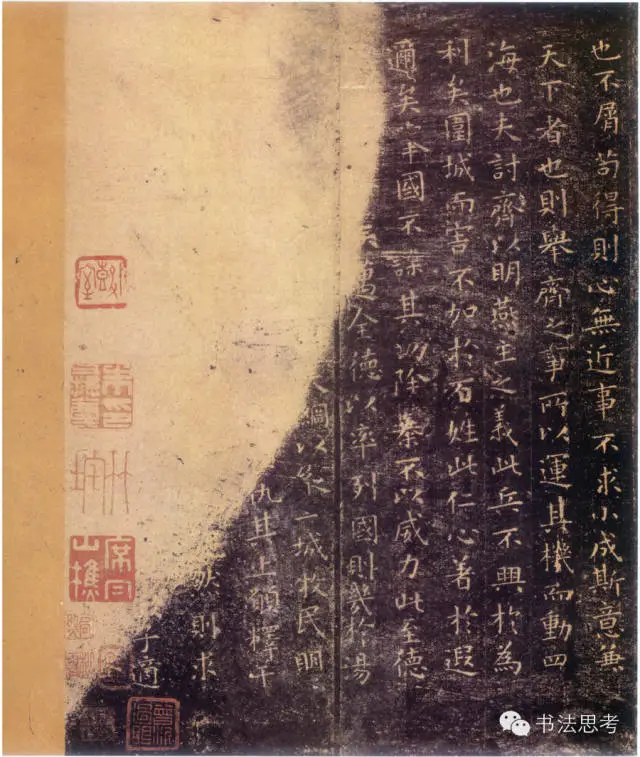 也不屑苟得則心無近事不求小成斯意兼
天下者也則舉齊之事所以運其機而動四
海也夫討齊以明燕主之義此兵不興於為
利矣圍城而害不加於百姓此仁心著於遐
邇矣舉國不謀其功除暴不以威力此至德
邁全德以率列國則幾於湯
綱以縱二城牧民明
仇其上願釋干
則求
子適
书法思考